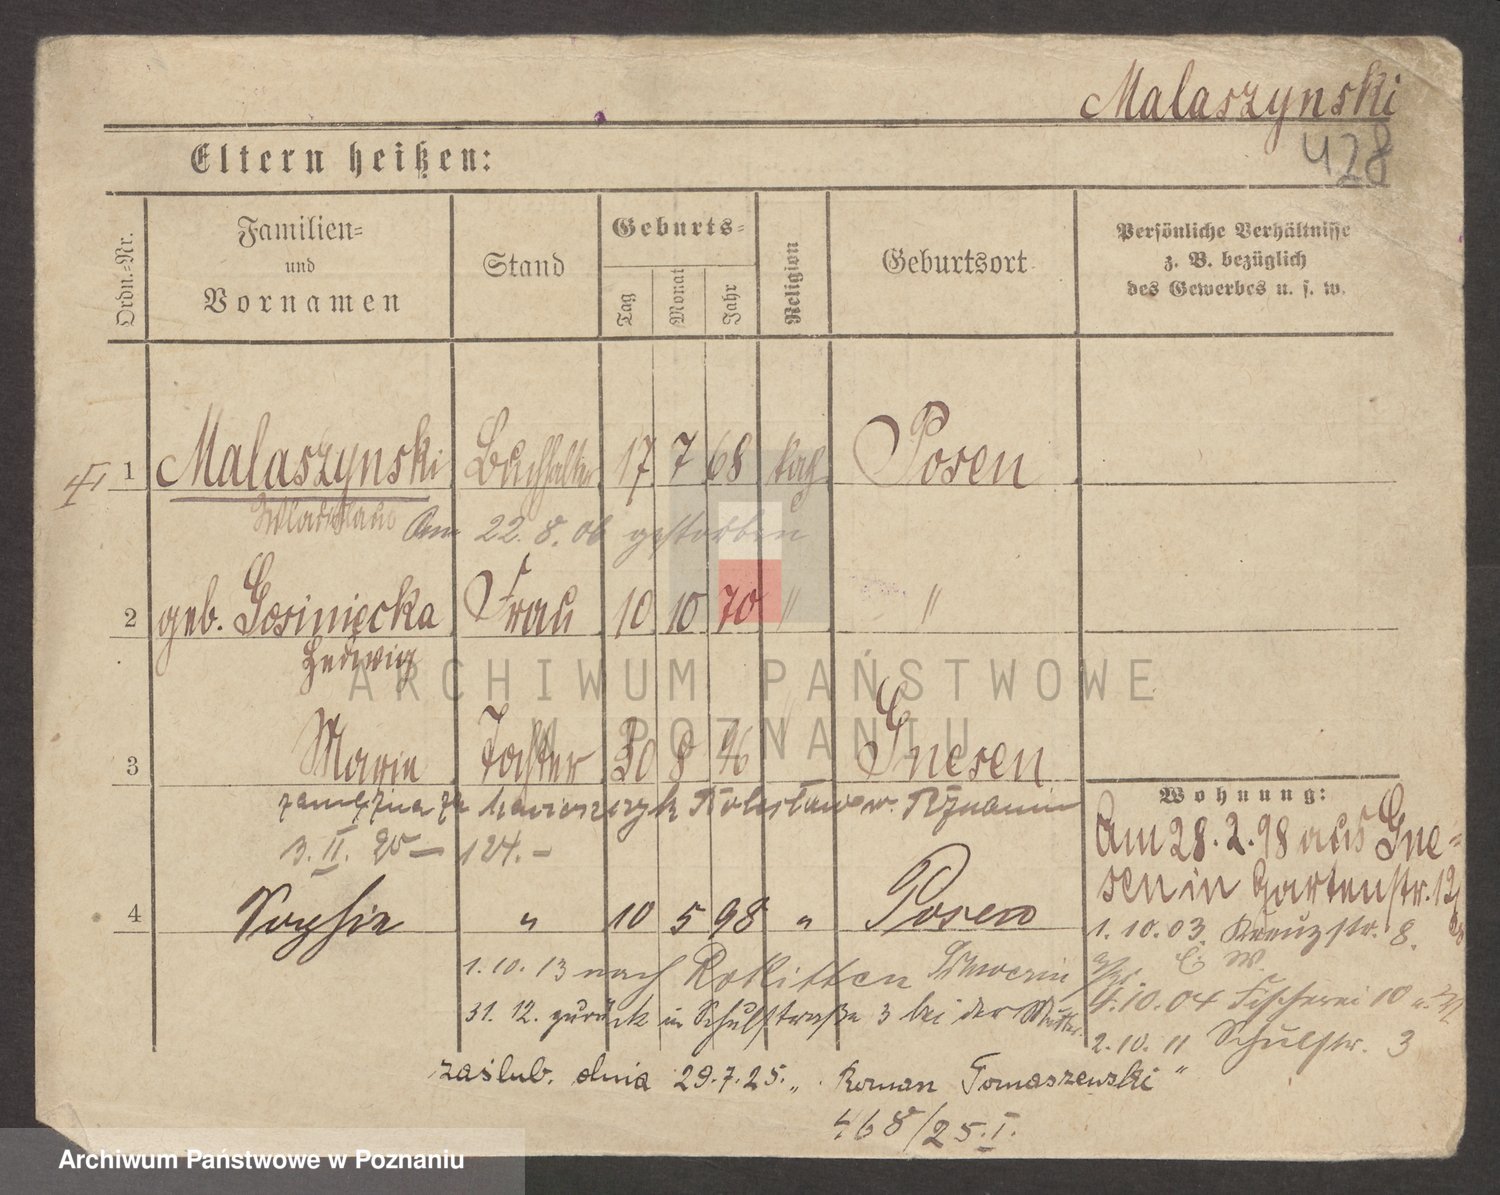 Malaszynski
428
Eltern heißen:
Ordn.-Nr.
Familien-
und
Vornamen
Stand
Geburts-
Tag
Monat
Jahr
Religion
Geburtsort
Persönliche Verhältnisse
z. B. bezüglich
des Gewerbes u. s. w.
1 Malaszynski Buchhalter 17 7 68 kath Posen
Wladislaus Am 22. 8. 06 gestorben
2 geb. Frau 10 10 70 " "
Hedwig
3 Marie Tochter 30 8 96 Gnesen
zamężna za w. Poznaniu
3. II. 25 — 124. —
Wohnung:
Am 28. 2. 98 aus Gne-
sen in Gartenstr. 12
4 Sophie " 10 5 98 " Posen
1. 10. 03. Kreuzstr. 8.
1. 10. 13 nach Rokitten Schwerin
4. 10. 04 Fischerei 10
31. 12. zurück in Schulstraße 3 bei der Mutter.
2. 10. 11 Schulstr. 3
zaślub. dnia 29. 7. 25. " Roman Tomaszewski "
468/25. I.
ARCHIWUM PAŃSTWOWE
W POZNANIU
Archiwum Państwowe w Poznaniu